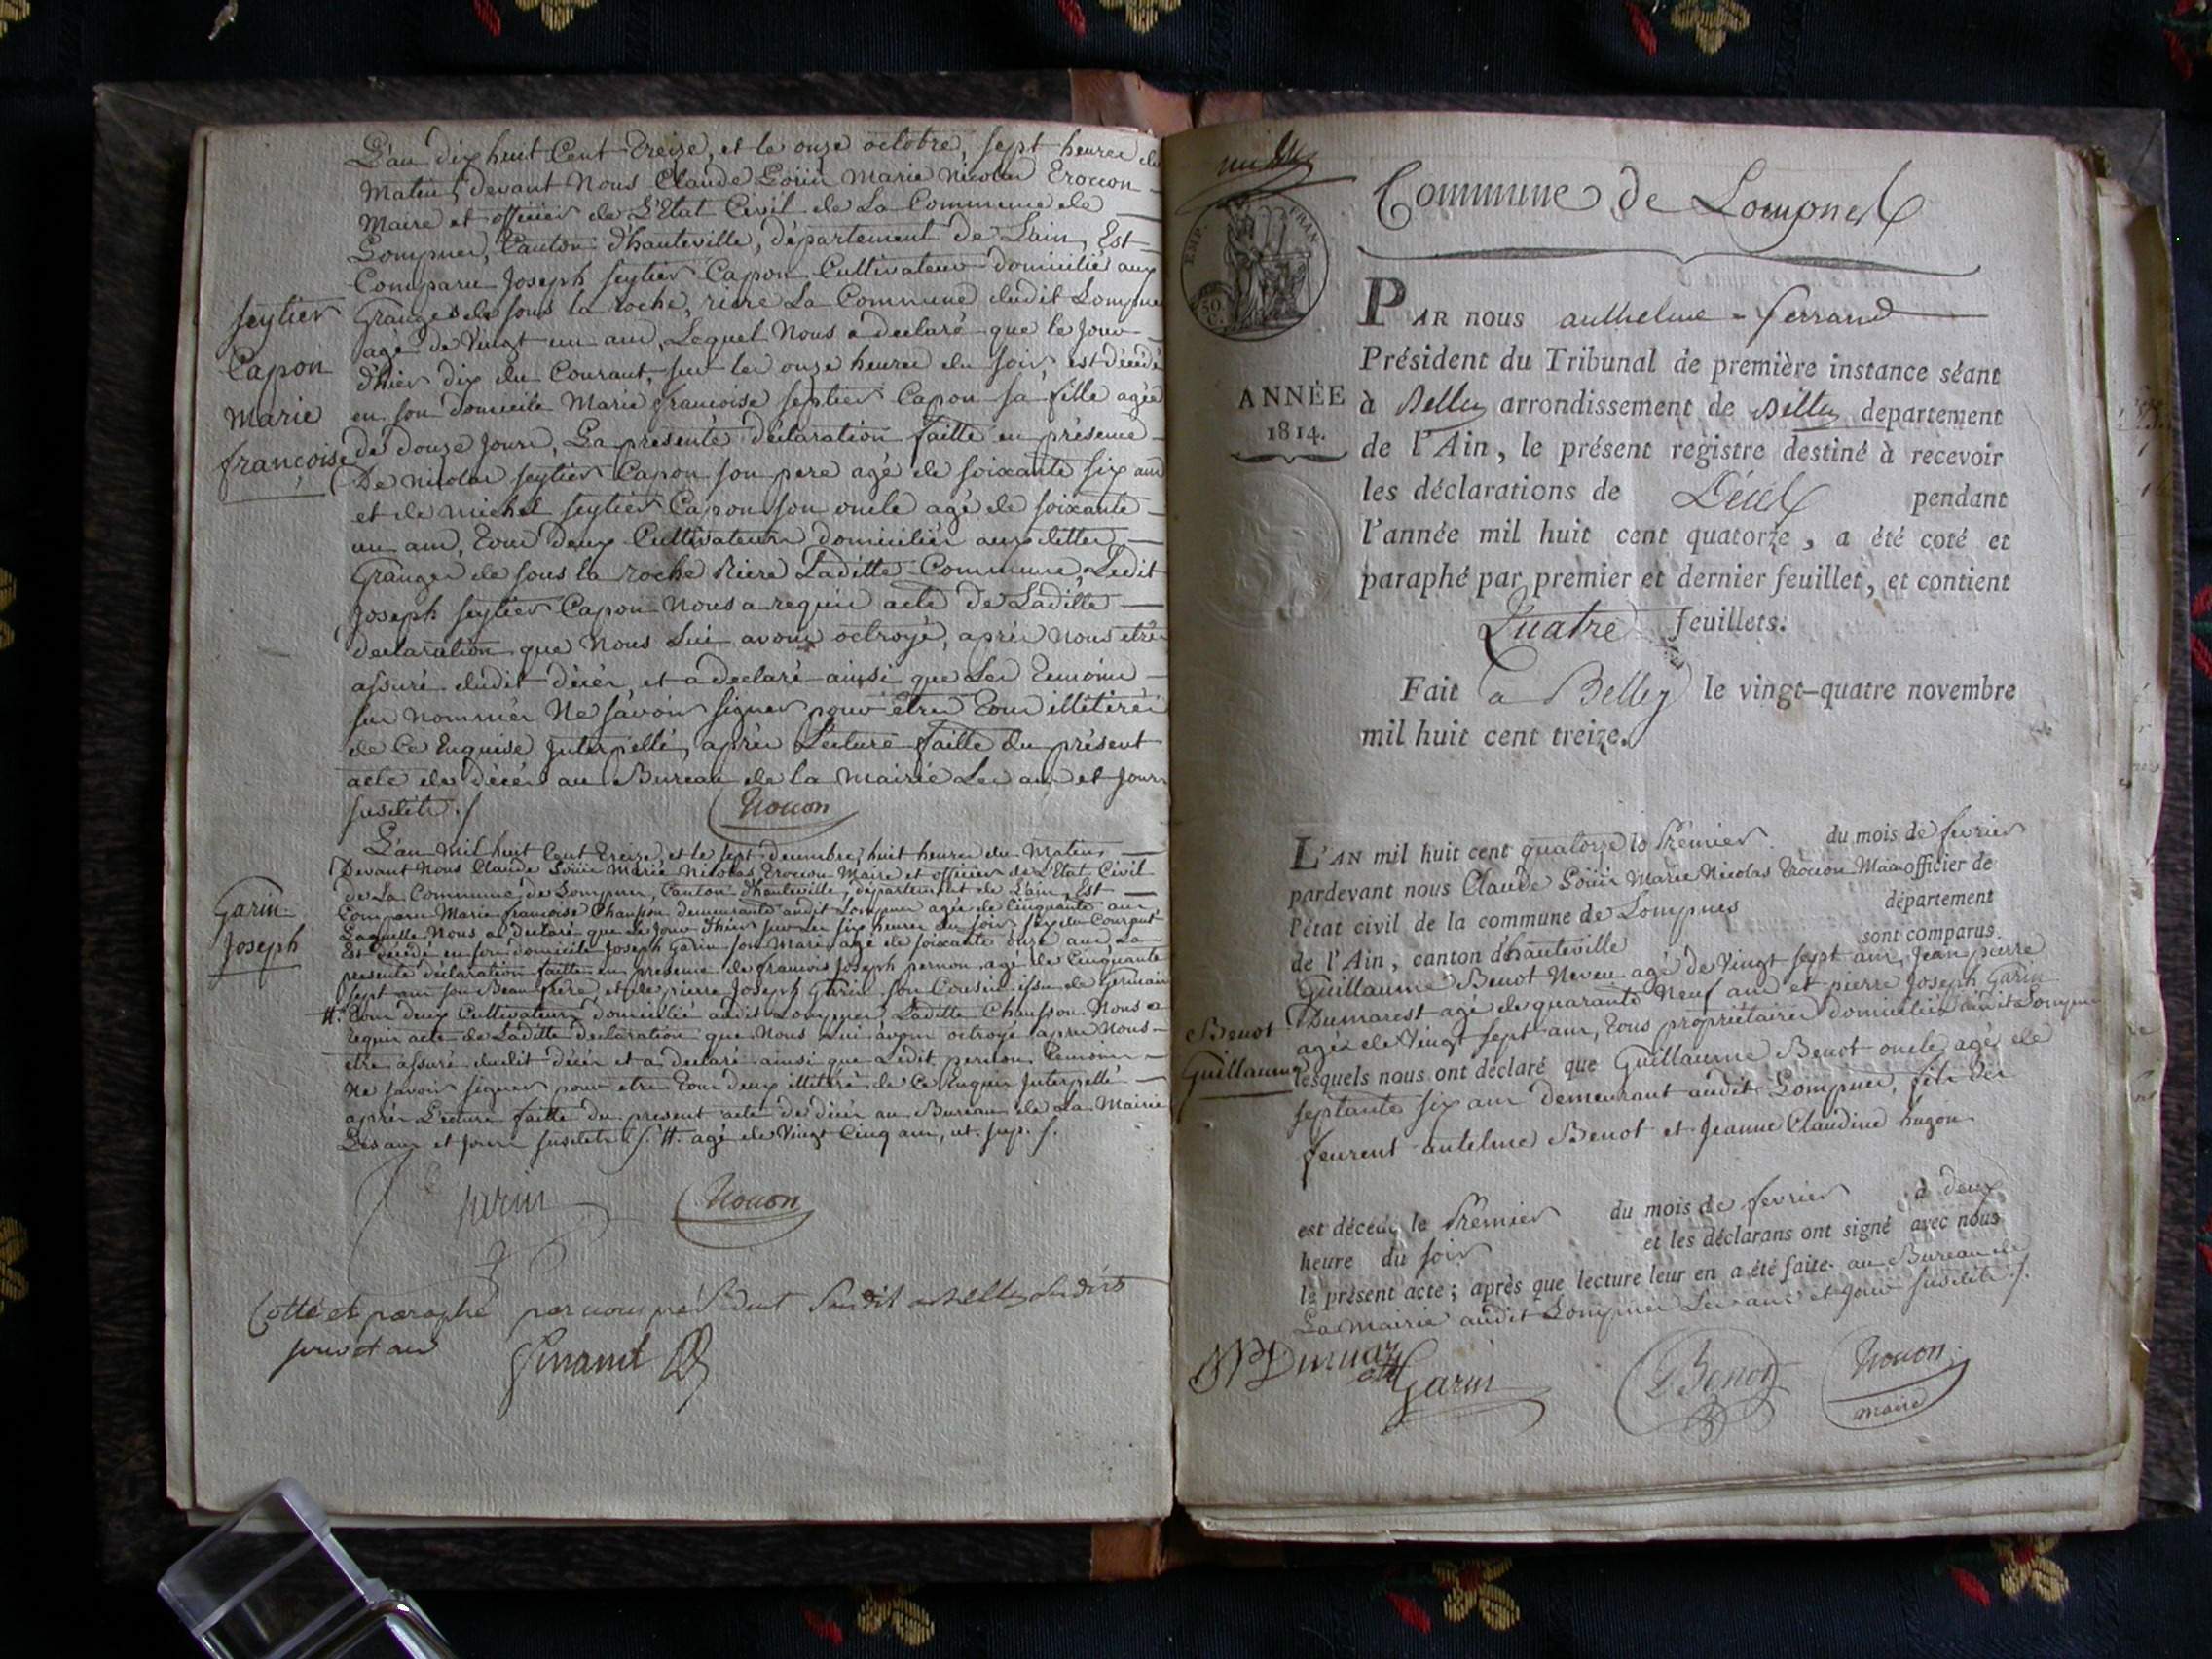 L'an dix huit Cent treize, et le onze octobre, sept heures du
Matin, devant Nous Claude Loüis Marie Nicolas Trocon
Maire et officier de L'Etat Civil de La Commune de
Lompnes, Canton d'hauteville, département de Lain, Est
Comparu Joseph Seytier Capon Cultivateur domicilié aux
Granges de sous la roche, riere La Commune dudit Lompnes
agé de Vingt un ans, Lequel Nous a declaré que le Jour
d'hier dix du Courant, sur les onze heures du soir, est décédé
en son domicile Marie francoise Seytier Capon sa fille agée
de douze Jours, La presente déclaration faitte en présence
De nicolas Seytier Capon son pere agé de soixante six ans
et de michel Seytier Capon son oncle agé de soixante
un ans, tous deux Cultivateurs domiciliés auxdittes
Granges de sous la roche Riere Laditte Commune, Ledit
Joseph Seytier Capon Nous a requis acte de Laditte
declaration que Nous Lui avons octroyé, après Nous etre
assuré dudit décès, et a declaré ainsi que Les temoins
sus nommés Ne savoir signer pour être tous illitérés
de Ce Enquis Interpellé, après Lecture faitte du présent
acte de décès au Bureau de la Mairie Les an et Jour
susdits ./.
Trocon
Seytier
Capon
Marie
françoise
L'an Mil huit Cent treize, et le sept decembre, huit heures du Matin,
Devant Nous Claude Loüis Marie Nicolas Trocon Maire et officier de L'Etat Civil
de La Commune de Lompnes, Canton d'hauteville, département de Lain, Est
Comparu Marie francoise Chanson demeurante audit Lompnes agée de Cinquante ans
Laquelle Nous a declaré que le Jour d'hier sur les six heures du soir six du Courant
Est décédé en son domicile Joseph Garin son Mari agé de soixante onze ans La
presente déclaration faitte en presence de francois Joseph pernon agé de Cinquante
sept ans son Beau frere, et de pierre Joseph Garin son Cousin issu de Germain
#. Tous deux Cultivateurs domiciliés audit Lompnes, Laditte Chanson Nous a
requis acte de Laditte declaration que Nous Lui avons octroyé apres Nous
etre assuré dudit décès et a declaré ainsi que Ledit pernon temoin
Ne savoir signer pour etre tous deux illitérés de Ce Enquis Interpellé
après Lecture faitte du present acte de décès au Bureau de La Mairie
Les an et Jour susdits ./. #. agé de Vingt Cinq ans, ut. sup. ./.
Garin
Joseph
Garin
Trocon
Cotté et paraphé par nous président susdit a Belley lesdits
jour et an
Ferrand
Commune de Lompnes
EMP. FRAN
50 C.
ANNÉE
1814.
PAR nous anthelme - ferrand
Président du Tribunal de première instance séant
à Belley arrondissement de Belley departement
de l'Ain, le présent registre destiné à recevoir
les déclarations de Décès pendant
l'année mil huit cent quatorze, a été coté et
paraphé par premier et dernier feuillet, et contient
Quatre feuillets.
Fait a Belley le vingt-quatre novembre
mil huit cent treize.
L'AN mil huit cent quatorze le Premier du mois de fevrier
pardevant nous Claude Loüis Marie Nicolas Trocon Maire officier de
l'état civil de la commune de Lompnes département
de l'Ain, canton d'hauteville sont comparus.
Guillaume Benot Neveu agé de Vingt sept ans, Jean pierre
Dumarest agé de quarante Neuf ans et pierre Joseph Garin
agé de Vingt sept ans, tous propriétaires domiciliés audit Lompnes
lesquels nous ont déclaré que Guillaume Benot oncle, agé de
septante six ans demeurant audit Lompnes, fils des
feurent antelme Benot et Jeanne Claudine hugon
Benot
Guillaume
est décédé le Premier du mois de fevrier à deux
heure du soir et les déclarans ont signé avec nous
le présent acte; après que lecture leur en a été faite. au Bureau de
La Mairie audit Lompnes Les an et Jour susdits ./.
Dumarest
Garin
G Benot
Trocon
maire